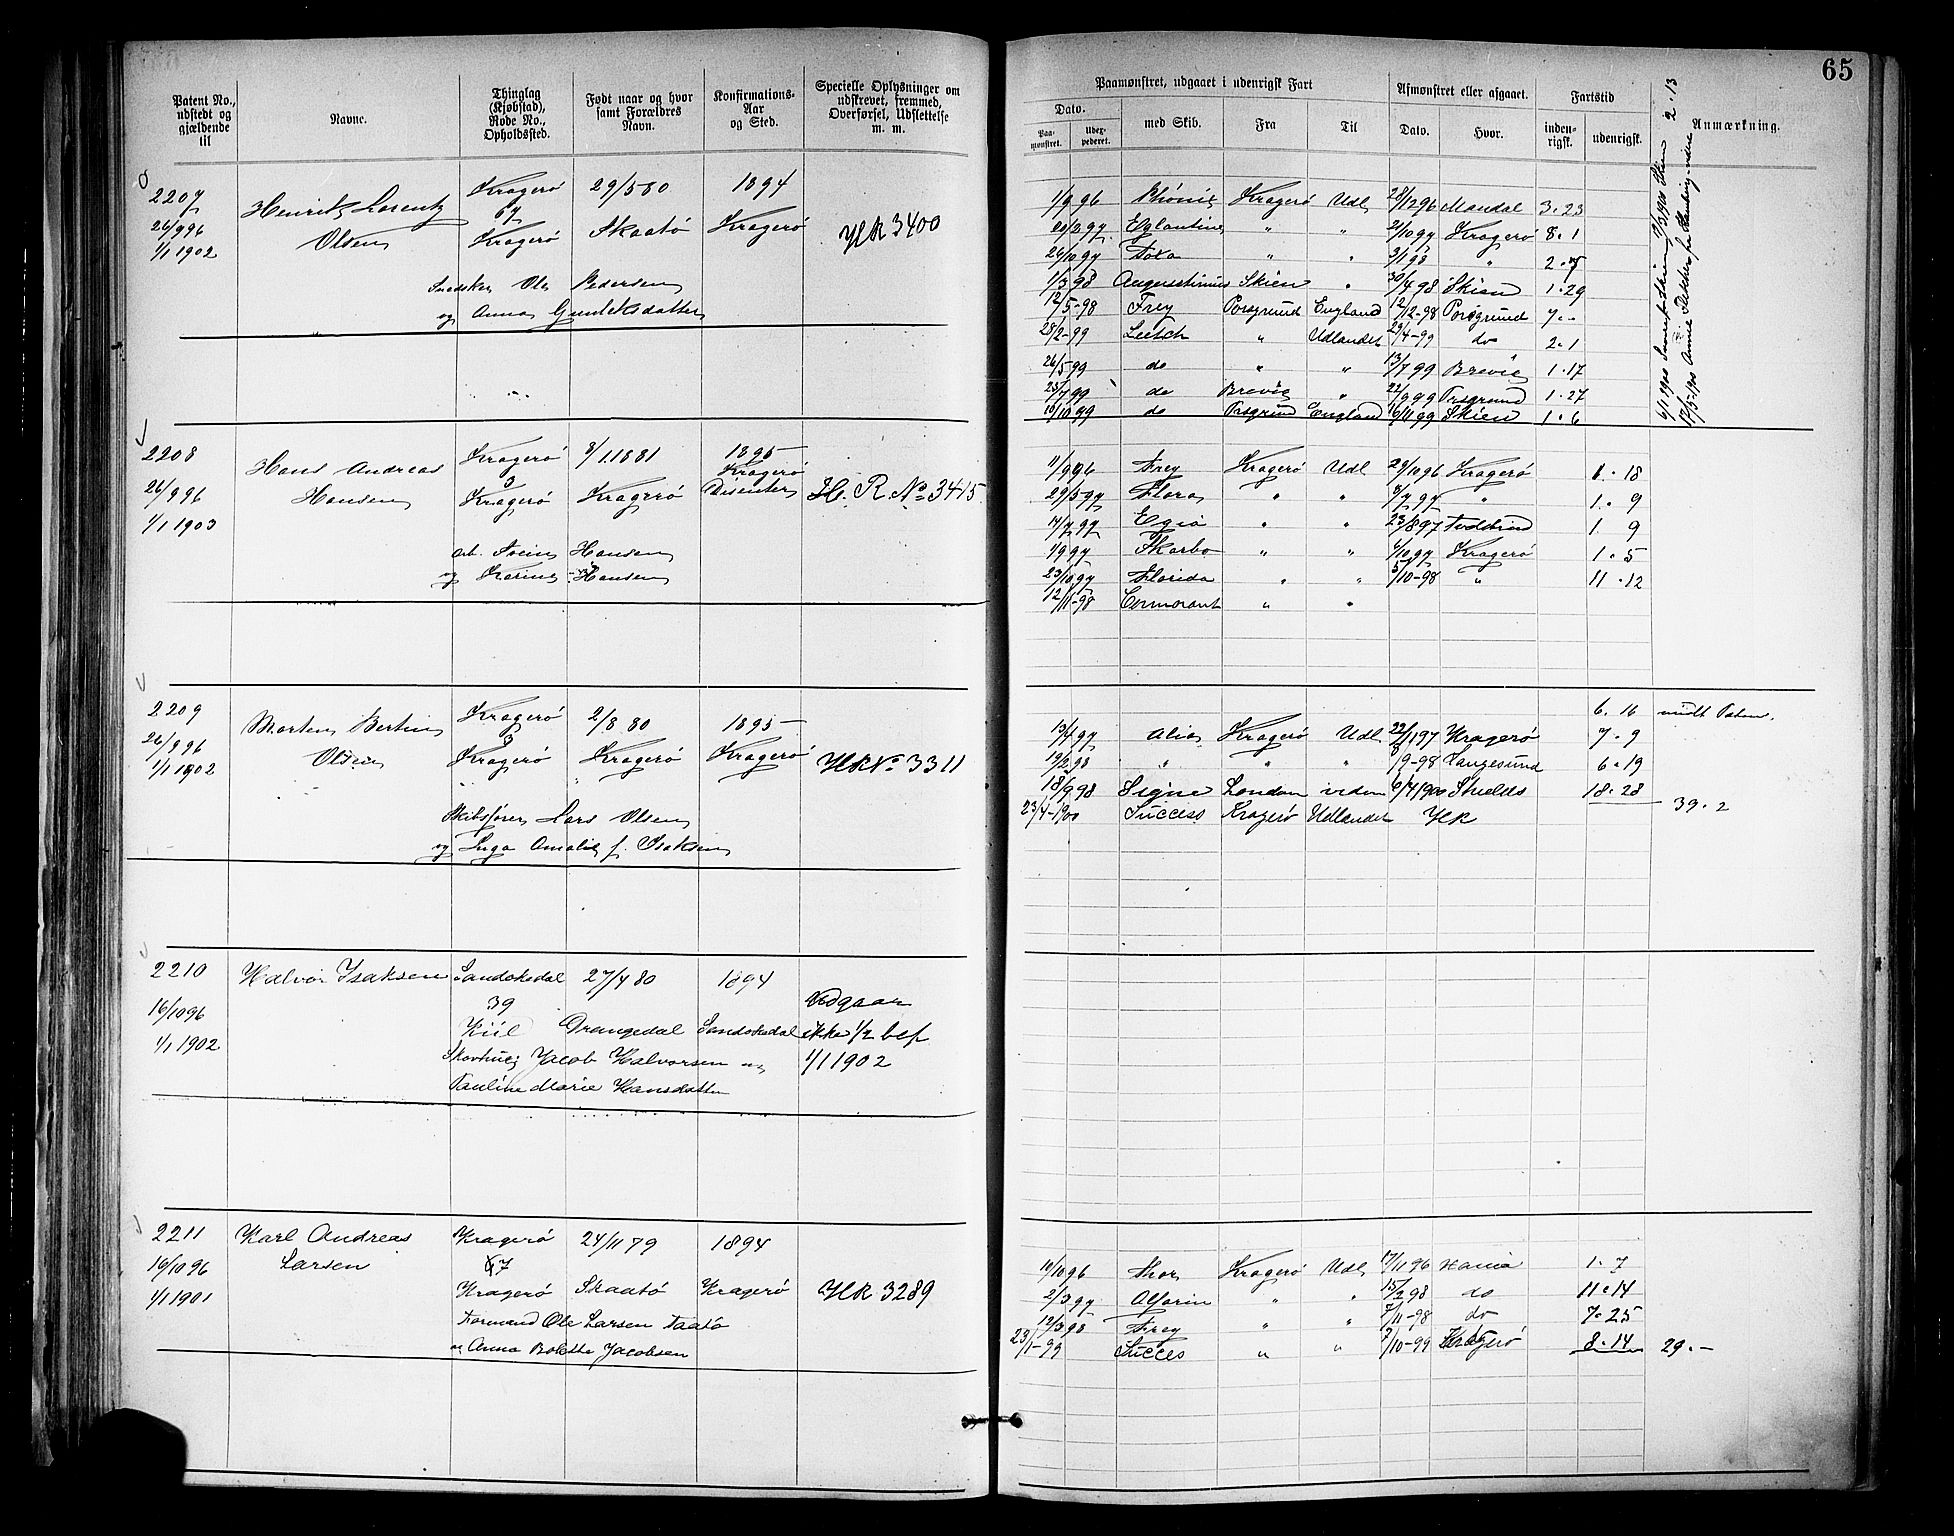 65
Patent No., udstedt og gjældende til
Navne.
Thinglag (Kjøbstad), Rode No., Opholdssted.
Født naar og hvor samt Forældres Navn.
Konfirmations-Aar og Sted.
Specielle Oplysninger om udskrevet, fremmed, Overførsel, Udslettelse m. m.
Paamønstret, udgaaet i udenrigsk Fart
Dato.
Paa-mønstret.
Uder-pederet.
med Skib.
Fra
Til
Afmønstret eller afgaaet.
Dato.
Hvor.
Fartstid
inden-rigsk.
udenrigsk.
Anmærkning.
2207 Kragerø 29/5 80 1894
Henrik Lorentz 67
26/9 96 Olsen Kragerø Skaatø Kragerø HR 3400
1/1 1902
Ole Pedersen
og Anna Gunleksdatter
1/9 96 Kragerø Udl 28/12 96 Mandal 3 . 23
Eglantine " " 2/10 97 Kragerø 8 . 1
26/10 97 " " 3/1 98 "
1/3 98 Skien " 30/4 98 Skien 1 . 29
12/5-98 Frey Porsgrund England 12/12-98 Porsgrund 7 . .
28/2-99 Leitch " Udlandet 29/4-99 do 2 . 1
26/5 99 do " " 13/7 99 Brevig 1 . 17
25/7 99 do Brevig " 22/9 99 Prsgrund 1 . 27
10/10 99 do Prsgrund England 16/11 99 Skien 1 . 6
2 . 13
2208 Kragerø 8/1 1881 1895
Hans Andreas 3 Kragerø
26/9 96 Hansen Kragerø Kragerø Disenter H. R. No 3415
1/1 1903
arb. Svein Hansen
og Karine Hansen
11/9 96 Frey Kragerø Udl 29/10 96 Kragerø 1 . 18
29/5 97 Flora " " 8/7 97 " 1 . 9
14/7 97 " " 23/8 97 1 9
1/9 97 Skarbo " " 6/10 97 Kragerø 1 . 5
23/10 97 Florida " " 5/10-98 " 11 . 12
12/11-98 Cormorant " "
2209 Kragerø 2/8 80 1895
Morten Bertin 3
26/9 96 Olsen Kragerø Kragerø Kragerø HR No. 3311
1/1 1902
Skibsfører Lars Olsen
og Inga Amalie f. Isaksen
6 . 16 midt Paten.
13/4 97 Alice Kragerø Udl. 22/11 97 Kragerø 7 . 9
19/2 98 " " " 8/9-98 Langesund 6 . 19
18/9 98 Signe London viden 6/4 1900 Shields 18 . 28
39 . 2
23/4-1900 Success Kragerø Udlandet HR
2210 Halvor Isaksen Sandøkedal 27/4 80 1894
39 Vedgaar
16/10 96 Kiil Drangedal Sandøkedal ikke 1/2 bef
1/1 1902 Jacob Halvorsen og 1/1 1902
Pauline Marie Hansdatter
2211 Karl Andreas Kragerø 24/11 79 1894
16/10 96 Larsen 7
1/1 1901 Kragerø Skaatø Kragerø HR 3289
Formand Ole Larsen Taatø
og Anna Jacobsen
10/10 96 Thor Kragerø Udl 17/11 96 1 . 7
2/3 97 Alfarin " " 15/2 98 do 11 . 14
12/3 98 Frey " " 7/11-98 do 7 . 25
23/1-99 Succes " " 7/10-99 Kragerø 8 . 14 29 . -